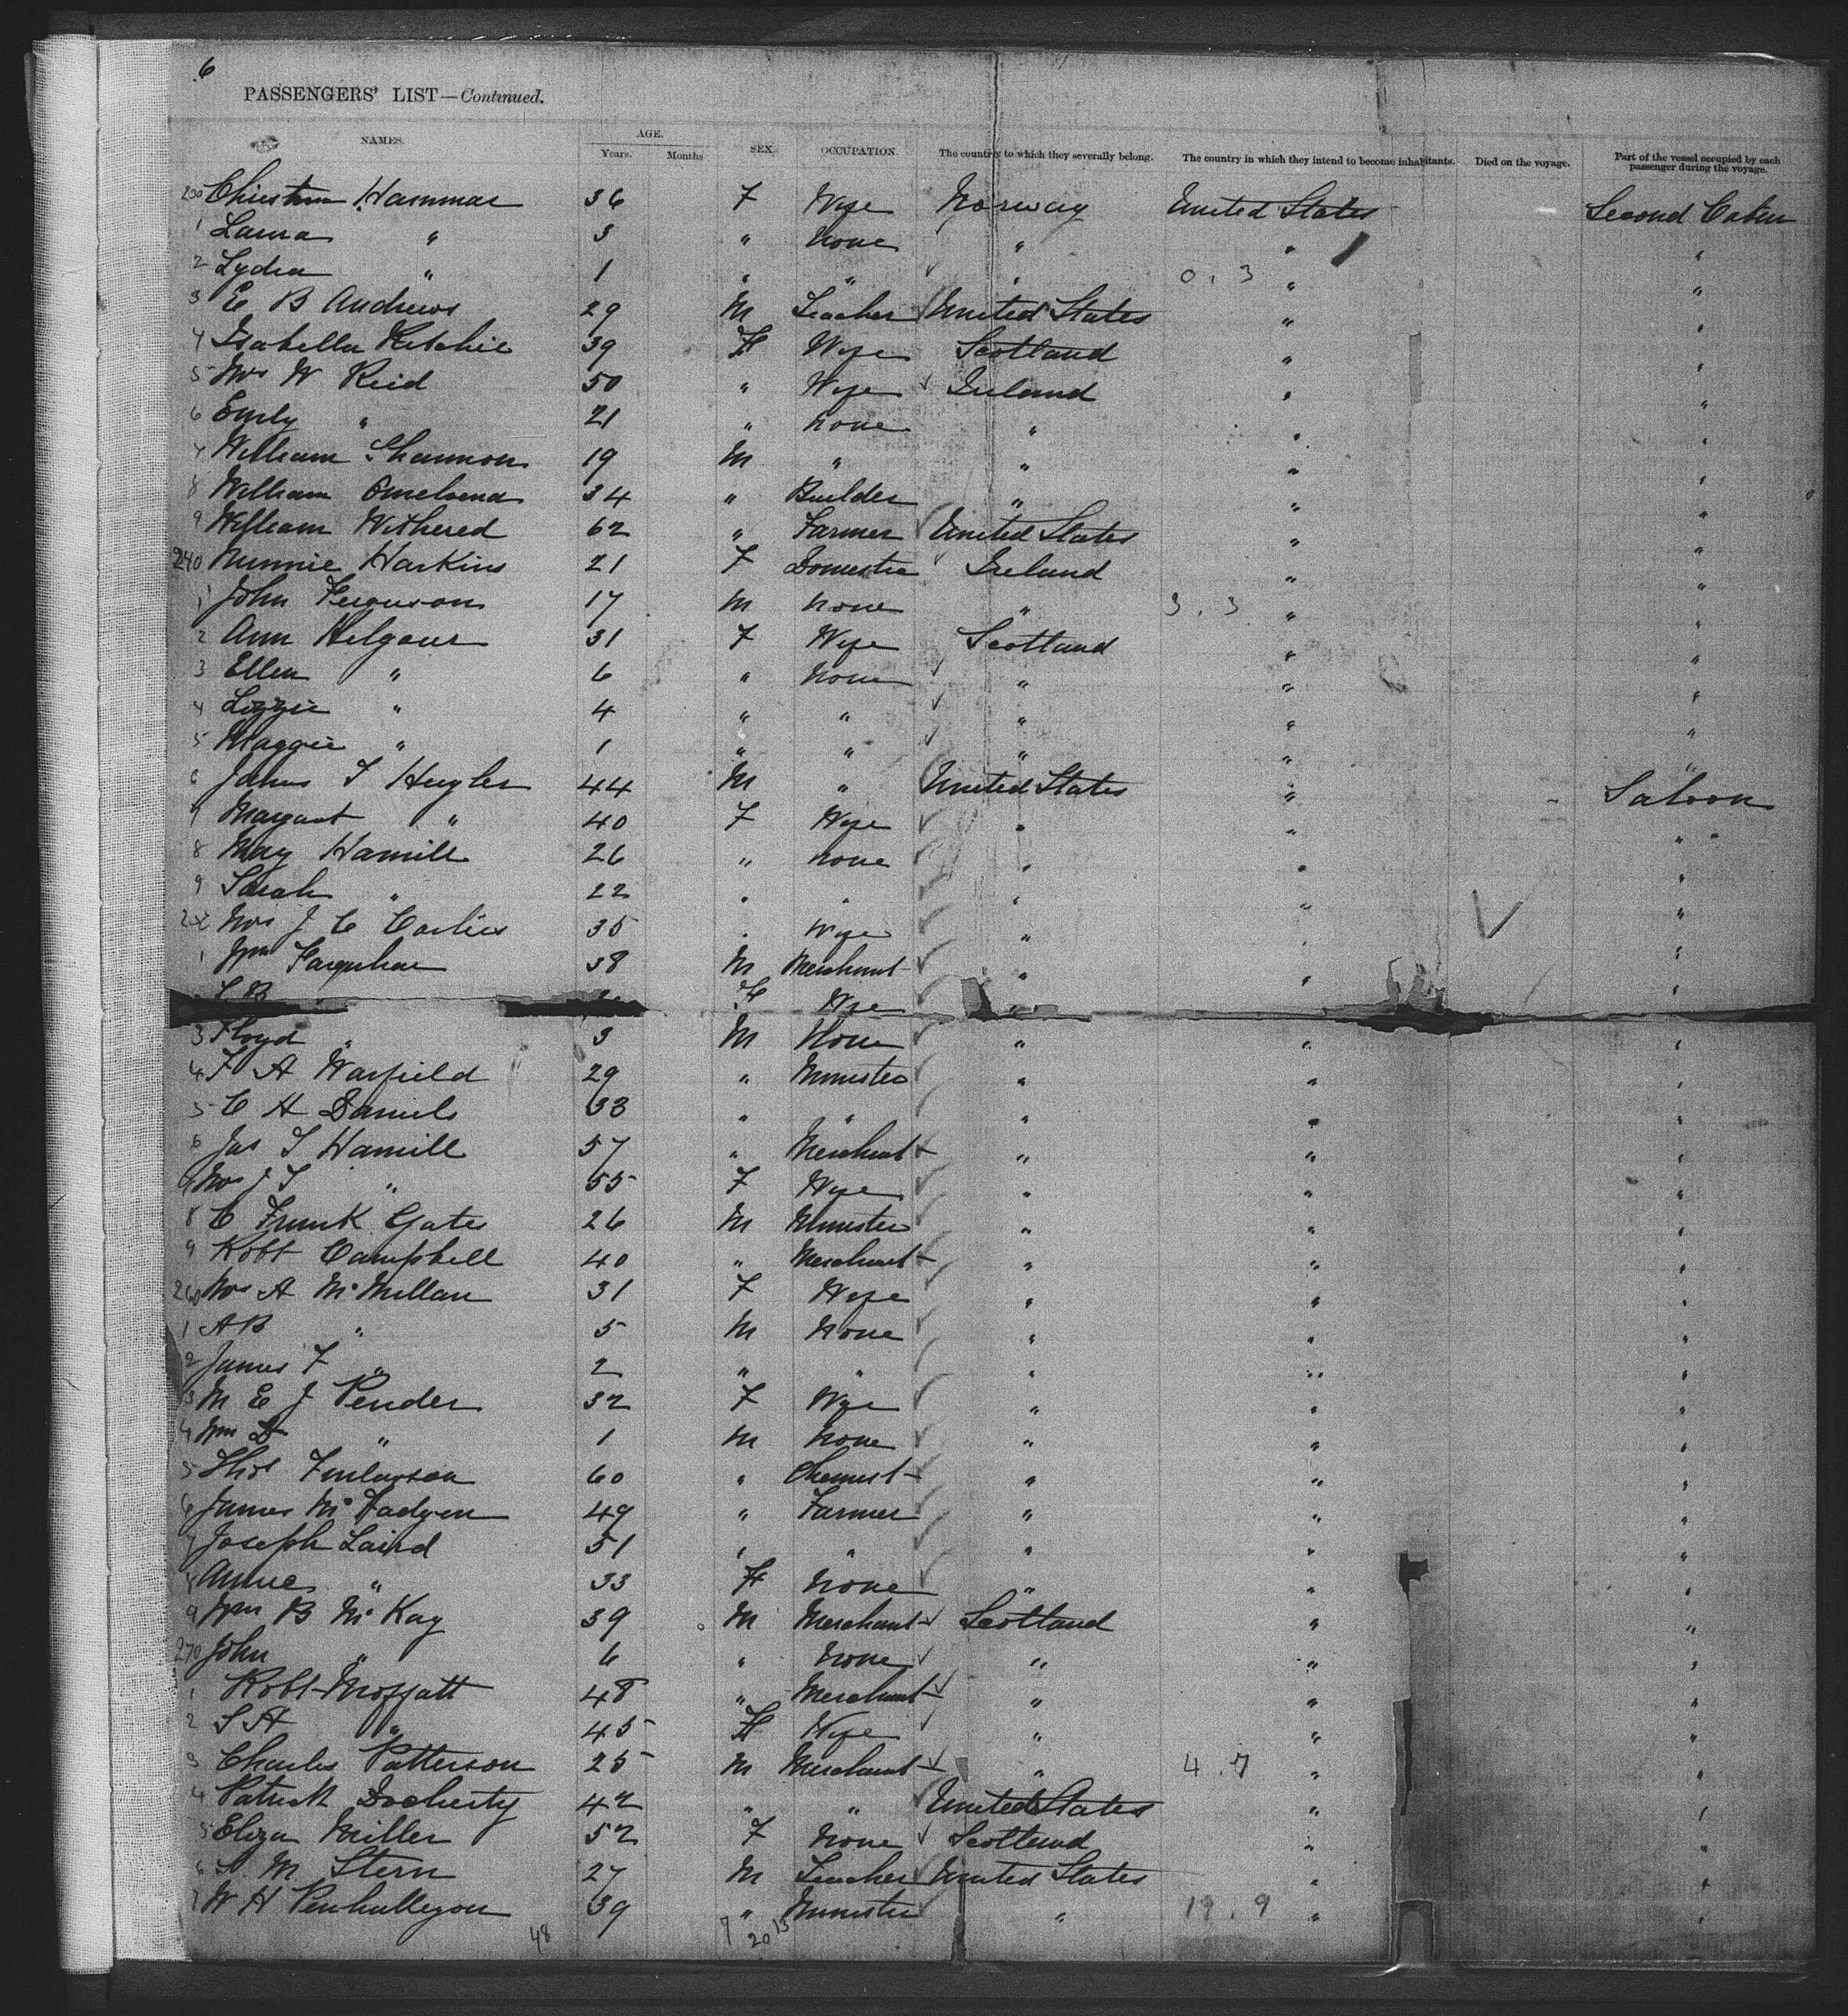 6
PASSENGERS' LIST—Continued.
NAMES. AGE. Years. Months SEX. OCCUPATION. The country to which they severally belong. The country in which they intend to become inhabitants. Died on the voyage. Part of the vessel occupied by each passenger during the voyage.
230 Hammar 36 F Wife Norway United States Second Cabin
1 Laura " 3 " None " " "
2 Lydia " 1 " " " 0.3 " "
3 E B Andrews 29 M Teacher United States " "
4 Isabella Ritchie 39 F Wife Scotland " "
5 Mrs W Reid 50 " Wife Ireland " "
6 Emily " 21 " None " " "
7 William Shannon 19 M " " " "
8 William 34 " Builder " " "
9 William Withered 62 " Farmer United States " "
240 Minnie Harkins 21 F Domestic Ireland " "
1 John Ferguson 17 M None " 3.3 " "
2 Ann Kilgour 31 F Wife Scotland " "
3 Ellen " 6 " None " " "
4 Lizzie " 4 " " " " "
5 Maggie " 1 " " " " "
6 James T Hugler 44 M " United States " Saloon
7 Margaret " 40 F Wife " " "
8 May Hamill 26 " None " " "
9 Sarah " 22 " " " " "
Mrs J C Corlies 35 " Wife " " "
1 Wm Farquhar 38 M Merchant " " "
F Wife "
3 Floyd " 3 M None " " "
4 F A Warfield 29 " Minister " " "
5 C H Daniels 33 " " " " "
6 Jas T Hamill 57 " Merchant " " "
7 Mrs J T " 55 F Wife " " "
8 C Frank Gates 26 M Minister " " "
9 Robt Campbell 40 " Merchant " " "
260 Mrs A McMillan 31 F Wife " " "
1 A B " 5 M None " " "
2 James F " 2 " " " " "
3 M E J Pender 32 F Wife " " "
4 Wm D " 1 M None " " "
5 Thos Finlayson 60 " Chemist " " "
6 James McFadyen 49 " Farmer " " "
7 Joseph Laird 51 " " " " "
8 Annie " 33 F None " " "
9 Wm B McKay 39 M Merchant Scotland " "
270 John " 6 " None " " "
1 Robt Moffatt 48 " Merchant " " "
2 S A " 45 F Wife " " "
3 Charles Patterson 25 M Merchant " 4.7 " "
4 Patrick Docherty 42 " " United States " "
5 Eliza Miller 52 F None Scotland " "
6 M Stern 27 M Teacher United States " "
7 W H Penhallegon 39 " Minister " 19.9 " "
48 7 20 13